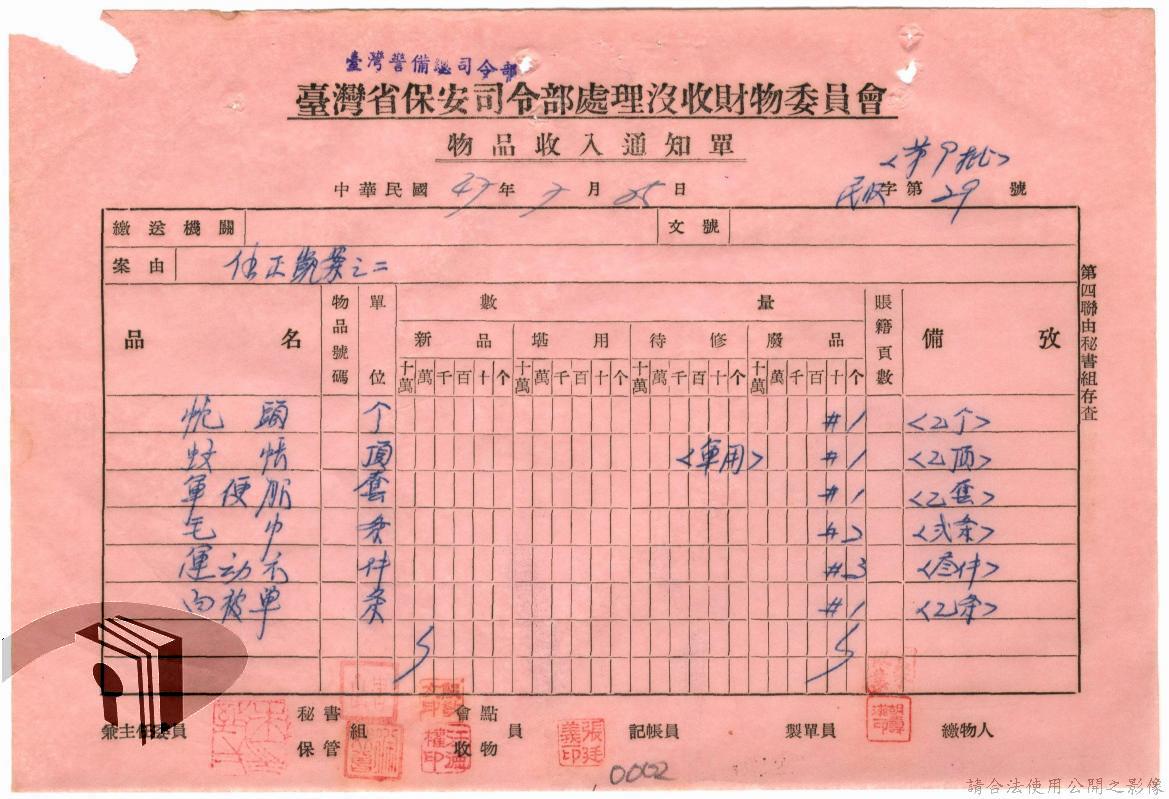 臺灣警備總司令部
臺灣省保安司令部處理沒收財物委員會
物品收入通知單
<第 批>
中華民國47年 月25日
民收字第29號
繳送機關 文號
案由 正 案之二
品名 物品號碼 單位 數量 賬籍頁數 備攷
新品 堪用 待修 廢品
十萬 萬 千 百 十 个 十萬 萬 千 百 十 个 十萬 萬 千 百 十 个 十萬 萬 千 百 十 个
枕頭 个 #1 <乙个>
蚊帳 頂 <軍用> #1 <乙顶>
軍便服 套 #1 <乙套>
毛巾 条 #2 <弍条>
運动衣 件 #3 <叁件>
內被单 条 #1 <乙条>
第四聯由秘書組存查
兼主任委員 秘書 保管 組 會點 收物 員 記帳員 製單員 繳物人
張廷義印
0002
請合法使用公開之影像